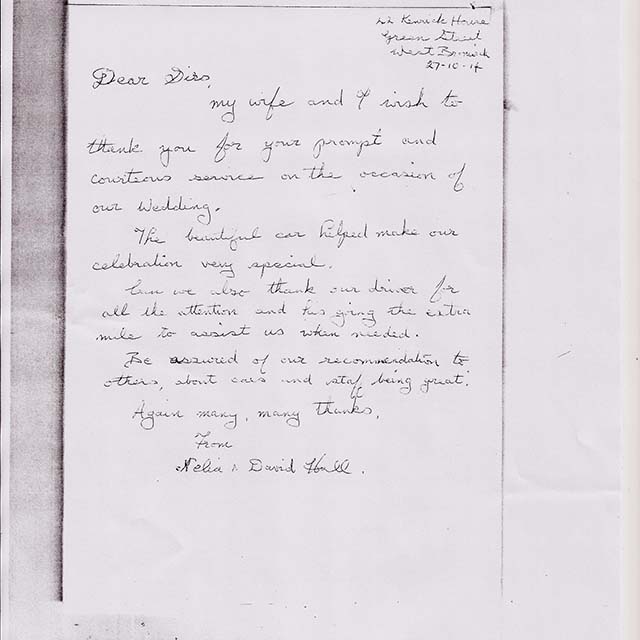 22 Kenrick House
Green Street
West Bromwich
27-10-14
Dear Sirs,
my wife and I wish to
thank you for your prompt and
courteous service on the occasion of
our Wedding.
The beautiful car helped make our
celebration very special.
Can we also thank our driver for
all the attention and his going the extra
mile to assist us when needed.
Be assured of our recommendation to
others, about cars and staff being great.
Again many, many thanks,
From
Nelia & David Hall.